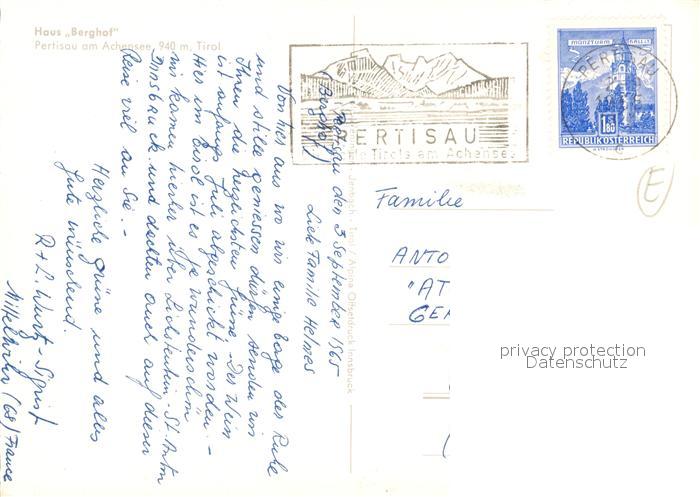 Haus „Berghof“
Pertisau am Achensee, 940 m, Tirol
Pertisau den 3 September 1965
(Berghof)
Liebe Familie Helmes
Von hier aus wo wir einige Tage der Ruhe
und Stille geniessen dürfen senden wir
Ihnen die herzlichsten Grüsse. - Der Wein
ist anfangs Juli abgeschickt worden. -
Hier im Tirol ist es ja wunderschön
wir kamen hierher über Lichstenstein - St. Anton
Innsbruck und dachten auch auf dieser
Reise viel an Sie. -
Herzliche Grüsse und alles
Gute wünschend.
R + L. Wurtz - Sigrist
Mittelwihr (68) France
Alpina Offsetdruck Innsbruck
PERTISAU
Tirols am Achensee
MÜNZTURM HALL I. T.
1.80
REPUBLIK ÖSTERREICH
PERTISAU
Familie
ANTO
"AT
GER
E
privacy protection
Datenschutz